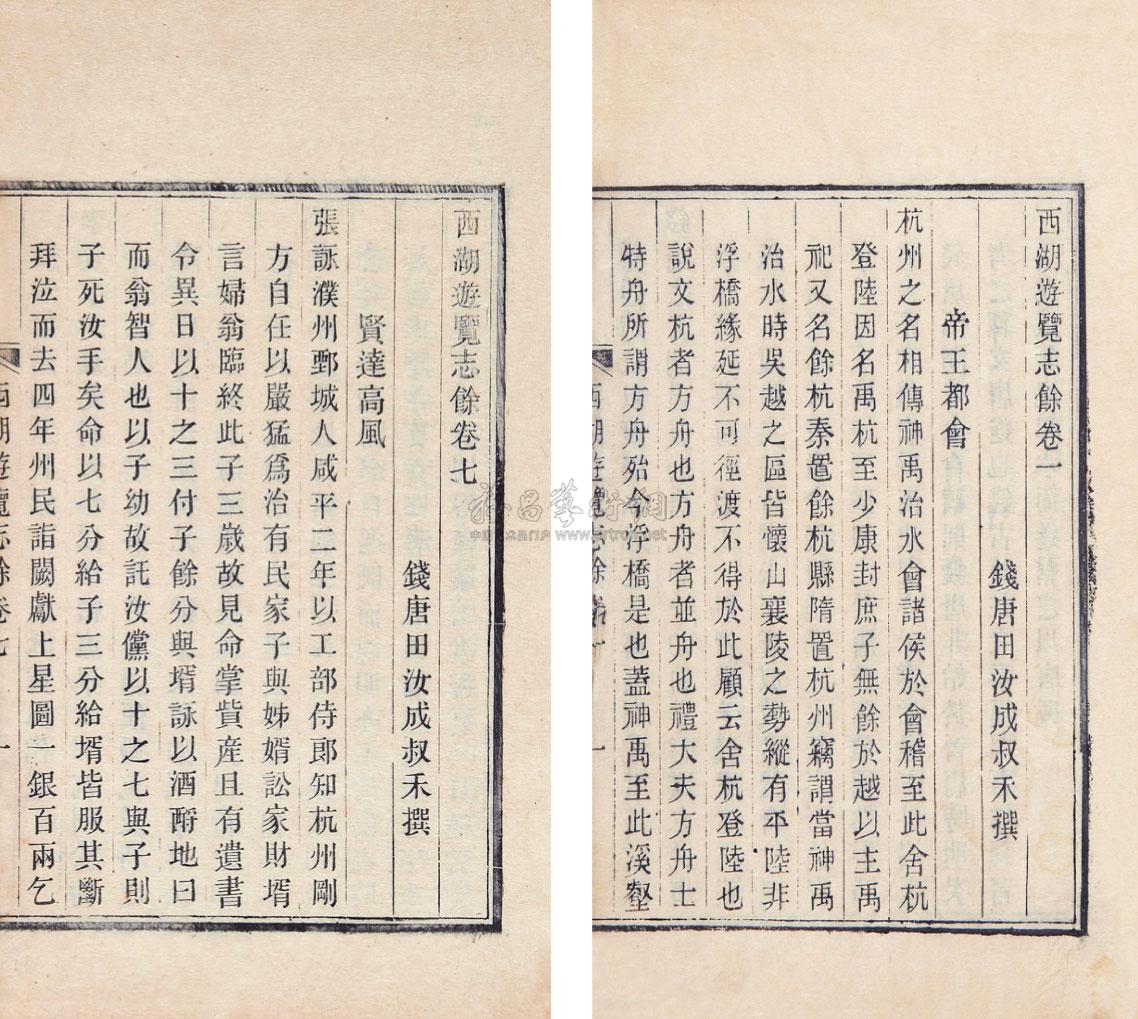 西湖遊覽志餘卷一
錢唐田汝成叔禾撰
帝王都會
杭州之名相傳神禹治水會諸侯於會稽至此舍杭
登陸因名禹杭至少康封庶子無餘於越以主禹
祀又名餘杭秦置餘杭縣隋置杭州竊謂當神禹
治水時吳越之區皆懷山襄陵之勢縱有平陸非
浮橋緣延不可徑渡不得於此顧云舍杭登陸也
說文杭者方舟也方舟者並舟也禮大夫方舟士
特舟所謂方舟殆今浮橋是也蓋神禹至此溪壑
西湖遊覽志餘卷七
錢唐田汝成叔禾撰
賢達高風
張詠濮州鄄城人咸平二年以工部侍郎知杭州剛
方自任以嚴猛爲治有民家子與姊婿訟家財壻
言婦翁臨終此子三歲故見命掌貲產且有遺書
令異日以十之三付子餘分與壻詠以酒酹地曰
而翁智人也以子幼故託汝儻以十之七與子則
子死汝手矣命以七分給子三分給壻皆服其斷
拜泣而去四年州民詣闕獻土星圖一銀百兩乞
西湖遊覽志餘卷七
一